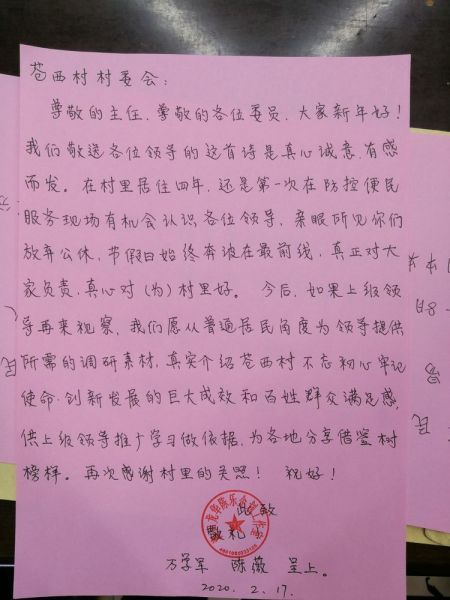 苍西村村委会：
尊敬的主任，尊敬的各位委员，大家新年好！
我们敬送各位领导的这首诗是真心诚意，有感
而发。在村里居住四年，还是第一次在防控便民
服务现场有机会认识各位领导，亲眼所见你们
放弃公休，节假日始终奔波在最前线，真正对大
家负责，真心对（为）村里好。 今后，如果上级领
导再来视察，我们愿从普通居民角度为领导提供
所需的调研素材，真实介绍苍西村不忘初心牢记
使命·创新发展的巨大成效和百姓群众满足感，
供上级领导推广学习做依据，为各地分享借鉴树
榜样。再次感谢村里的关照！ 祝好！
此致
敬礼
万学军 陈薇 呈上。
2020. 2. 17.
民
8月
民